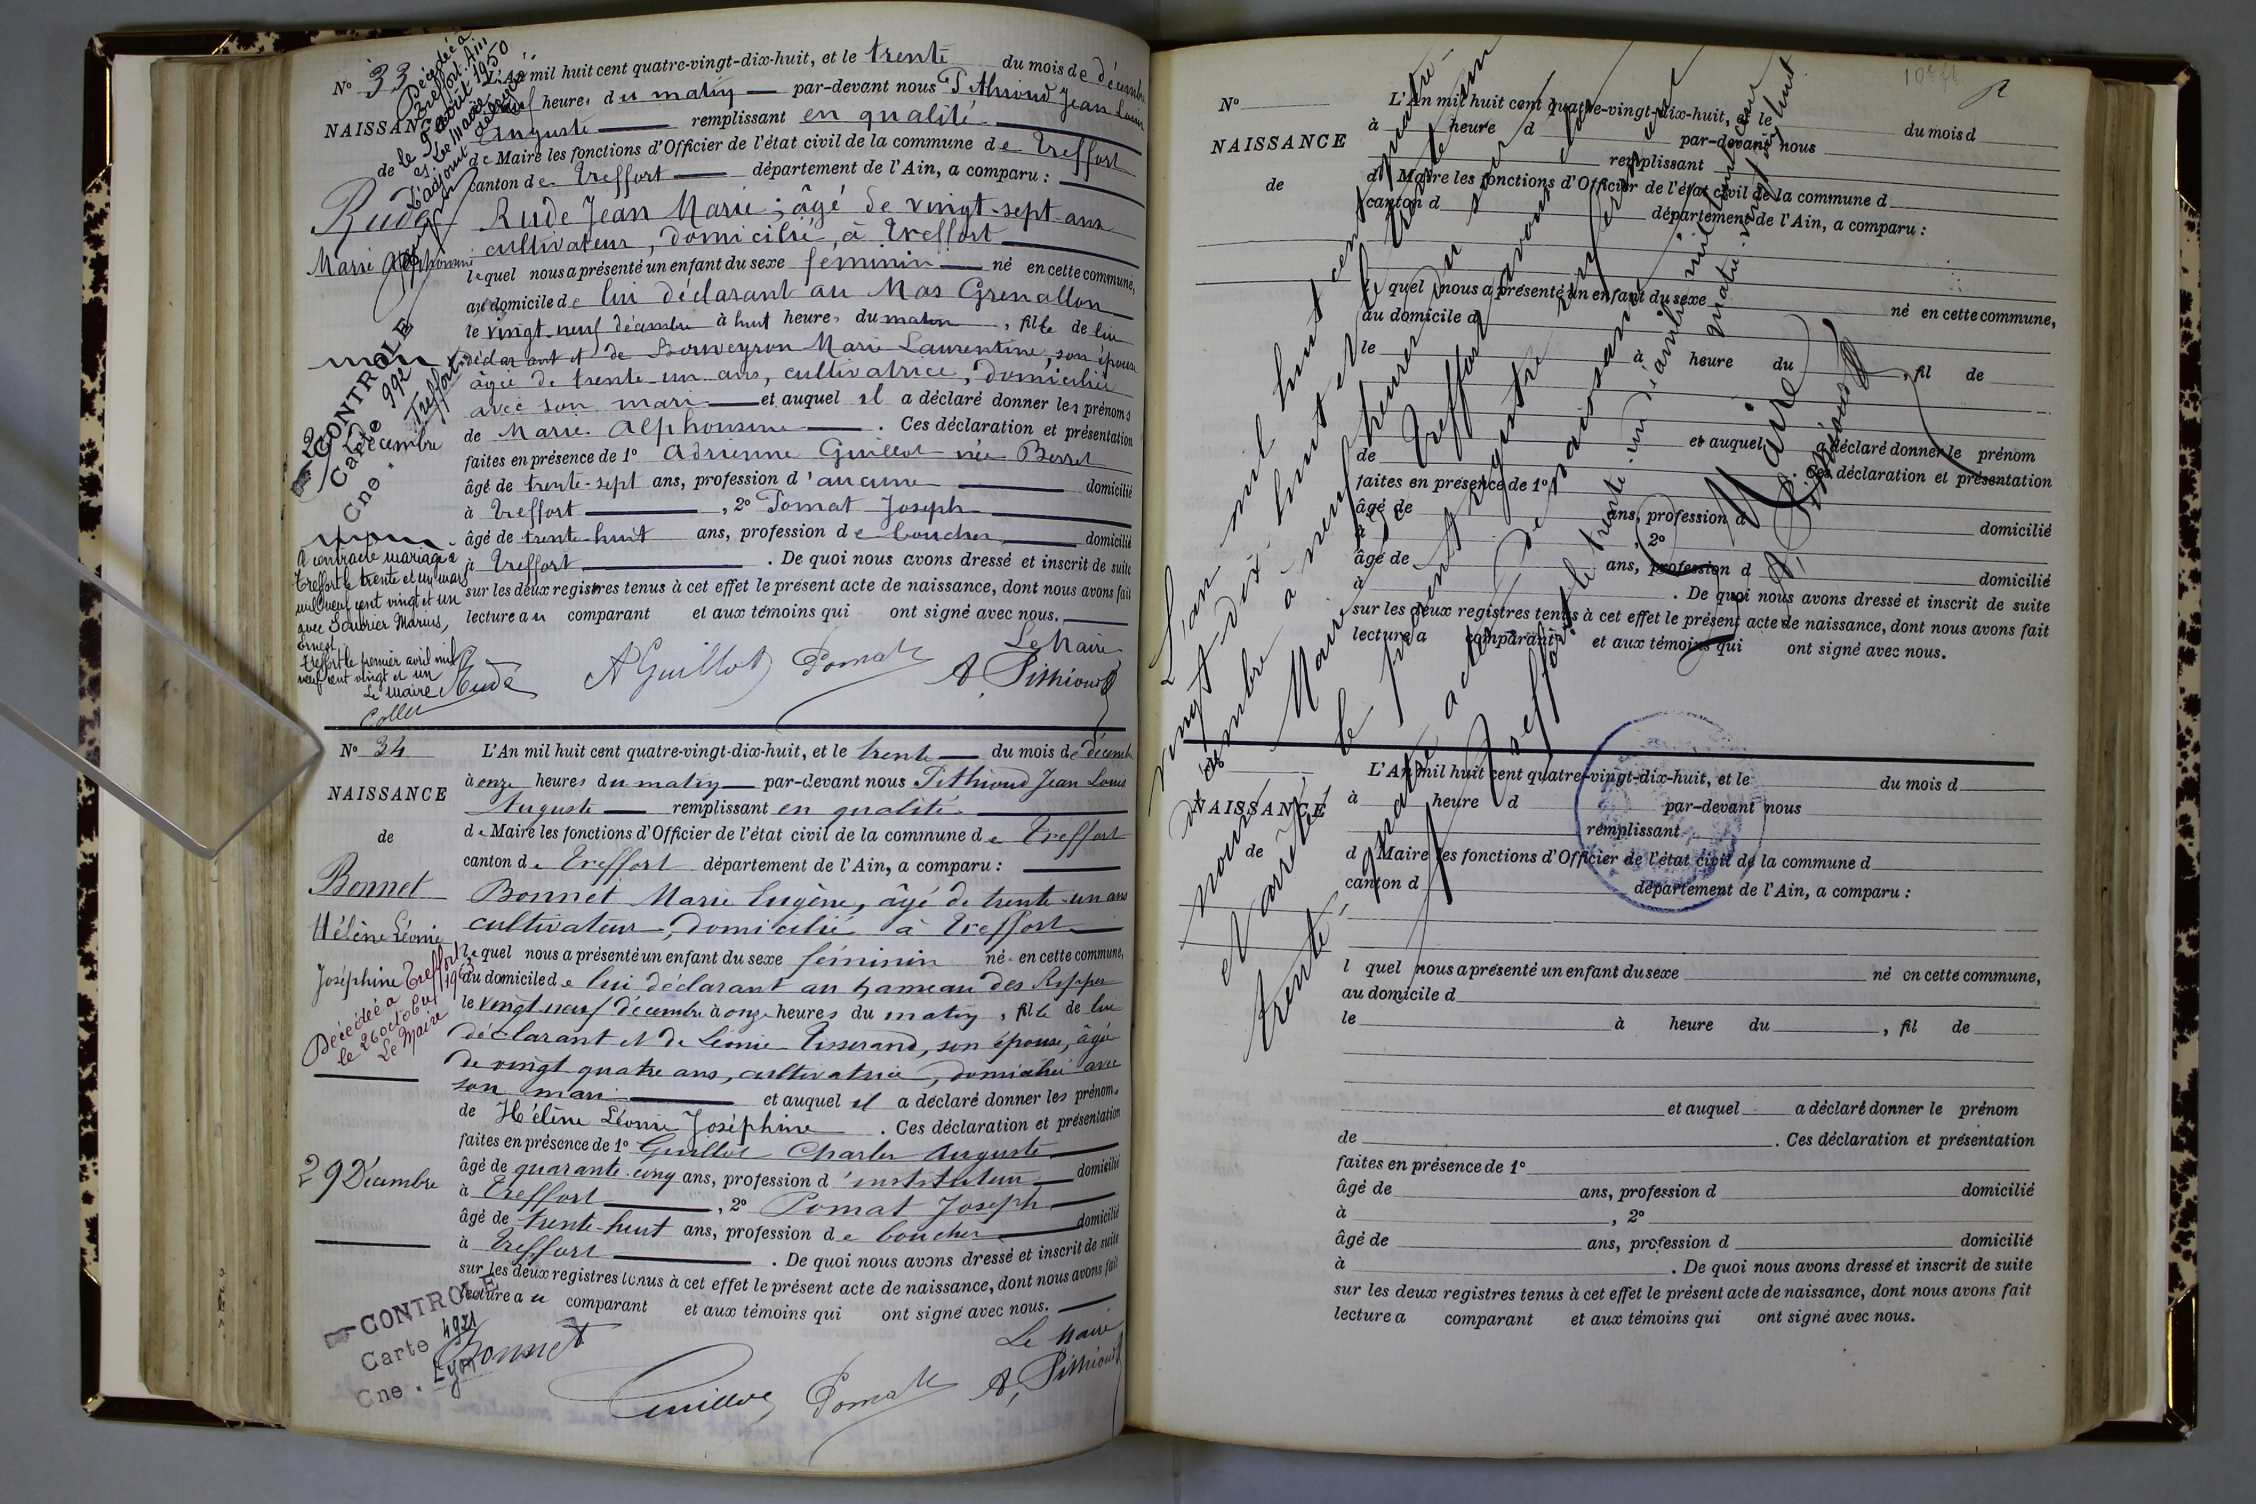 N° 33
NAISSANCE
de
Rude
Marie Alphonsine
L'An mil huit cent quatre-vingt-dix-huit, et le trente du mois de décembre
heures du matin par-devant nous Pithioud Jean Louis
Auguste remplissant en qualité
de Maire les fonctions d'Officier de l'état civil de la commune de Treffort
canton de Treffort département de l'Ain, a comparu :
Rude Jean Marie, âgé de vingt-sept ans
cultivateur, domicilié, à Treffort
lequel nous a présenté un enfant du sexe féminin né en cette commune,
au domicile de lui déclarant au Mas Grenallon
le vingt-neuf décembre à huit heures du matin, fille de lui
déclarant et de Marie Laurentine, son épouse
âgée de trente-un ans, cultivatrice, domiciliée
avec son mari et auquel il a déclaré donner les prénoms
de Marie Alphonsine. Ces déclaration et présentation
faites en présence de 1° Adrienne Guillot née
âgé de trente-sept ans, profession d'aucune domicilié
à Treffort, 2° Pomat Joseph
âgé de trente-huit ans, profession de boucher domicilié
à Treffort. De quoi nous avons dressé et inscrit de suite
sur les deux registres tenus à cet effet le présent acte de naissance, dont nous avons fait
lecture au comparant et aux témoins qui ont signé avec nous.
Le Maire
Rude A Guillot Pomat A. Pithioud
Décédée à
Treffort Ain
le 9 août 1950
Le Maire
L'adjoint délégué
CONTROLE
Carte 992
Cne. Treffort
29 Décembre
A contracté mariage à
Treffort le trente et un mars
mil neuf cent vingt et un
avec Marius,
Ernest
Treffort le premier avril mil
neuf cent vingt et un
Le Maire
N° 34
NAISSANCE
de
Bonnet
Hélène Léonie
Joséphine
Décédée à Treffort
le 26 octobre
Le Maire
29 Décembre
L'An mil huit cent quatre-vingt-dix-huit, et le trente du mois de décembre
à onze heures du matin par-devant nous Pithioud Jean Louis
Auguste remplissant en qualité
de Maire les fonctions d'Officier de l'état civil de la commune de Treffort
canton de Treffort département de l'Ain, a comparu :
Bonnet Marie Eugène, âgé de trente-un ans
cultivateur, domicilié à Treffort
lequel nous a présenté un enfant du sexe féminin né en cette commune,
au domicile de lui déclarant au hameau des
le vingt-neuf décembre à onze heures du matin, fille de lui
déclarant et de Léonie Tisserand, son épouse, âgée
de vingt quatre ans, cultivatrice, domiciliée avec
son mari et auquel il a déclaré donner les prénoms
de Hélène Léonie Joséphine. Ces déclaration et présentation
faites en présence de 1° Guillot Charles Auguste
âgé de quarante-cinq ans, profession d'instituteur domicilié
à Treffort, 2° Pomat Joseph
âgé de trente-huit ans, profession de boucher domicilié
à Treffort. De quoi nous avons dressé et inscrit de suite
sur les deux registres tenus à cet effet le présent acte de naissance, dont nous avons fait
lecture au comparant et aux témoins qui ont signé avec nous.
Le Maire
Bonnet Guillot Pomat A. Pithioud
CONTROLE
Carte 4921
Cne. Lyon
N°
NAISSANCE
de
L'An mil huit cent quatre-vingt-dix-huit, et le du mois d
à heure d par-devant nous
remplissant
d Maire les fonctions d'Officier de l'état civil de la commune d
canton d département de l'Ain, a comparu :
l quel nous a présenté un enfant du sexe né en cette commune,
au domicile d
le à heure du , fil de
et auquel a déclaré donner le prénom
de . Ces déclaration et présentation
faites en présence de 1°
âgé de ans, profession d domicilié
à , 2°
âgé de ans, profession d domicilié
à . De quoi nous avons dressé et inscrit de suite
sur les deux registres tenus à cet effet le présent acte de naissance, dont nous avons fait
lecture a comparant et aux témoins qui ont signé avec nous.
L'an mil huit cent quatre-
vingt-dix-huit et le trente un
décembre à neuf heures du soir
nous Maire de Treffort avons clos
et arrêté le présent registre renfermant
trente-quatre actes de naissance
Treffort, le trente-un décembre mil huit cent
quatre-vingt-dix-huit
Le Maire
A. Pithioud
NAISSANCE
de
L'An mil huit cent quatre-vingt-dix-huit, et le du mois d
à heure d par-devant nous
remplissant
d Maire les fonctions d'Officier de l'état civil de la commune d
canton d département de l'Ain, a comparu :
l quel nous a présenté un enfant du sexe né en cette commune,
au domicile d
le à heure du , fil de
et auquel a déclaré donner le prénom
de . Ces déclaration et présentation
faites en présence de 1°
âgé de ans, profession d domicilié
à , 2°
âgé de ans, profession d domicilié
à . De quoi nous avons dressé et inscrit de suite
sur les deux registres tenus à cet effet le présent acte de naissance, dont nous avons fait
lecture a comparant et aux témoins qui ont signé avec nous.